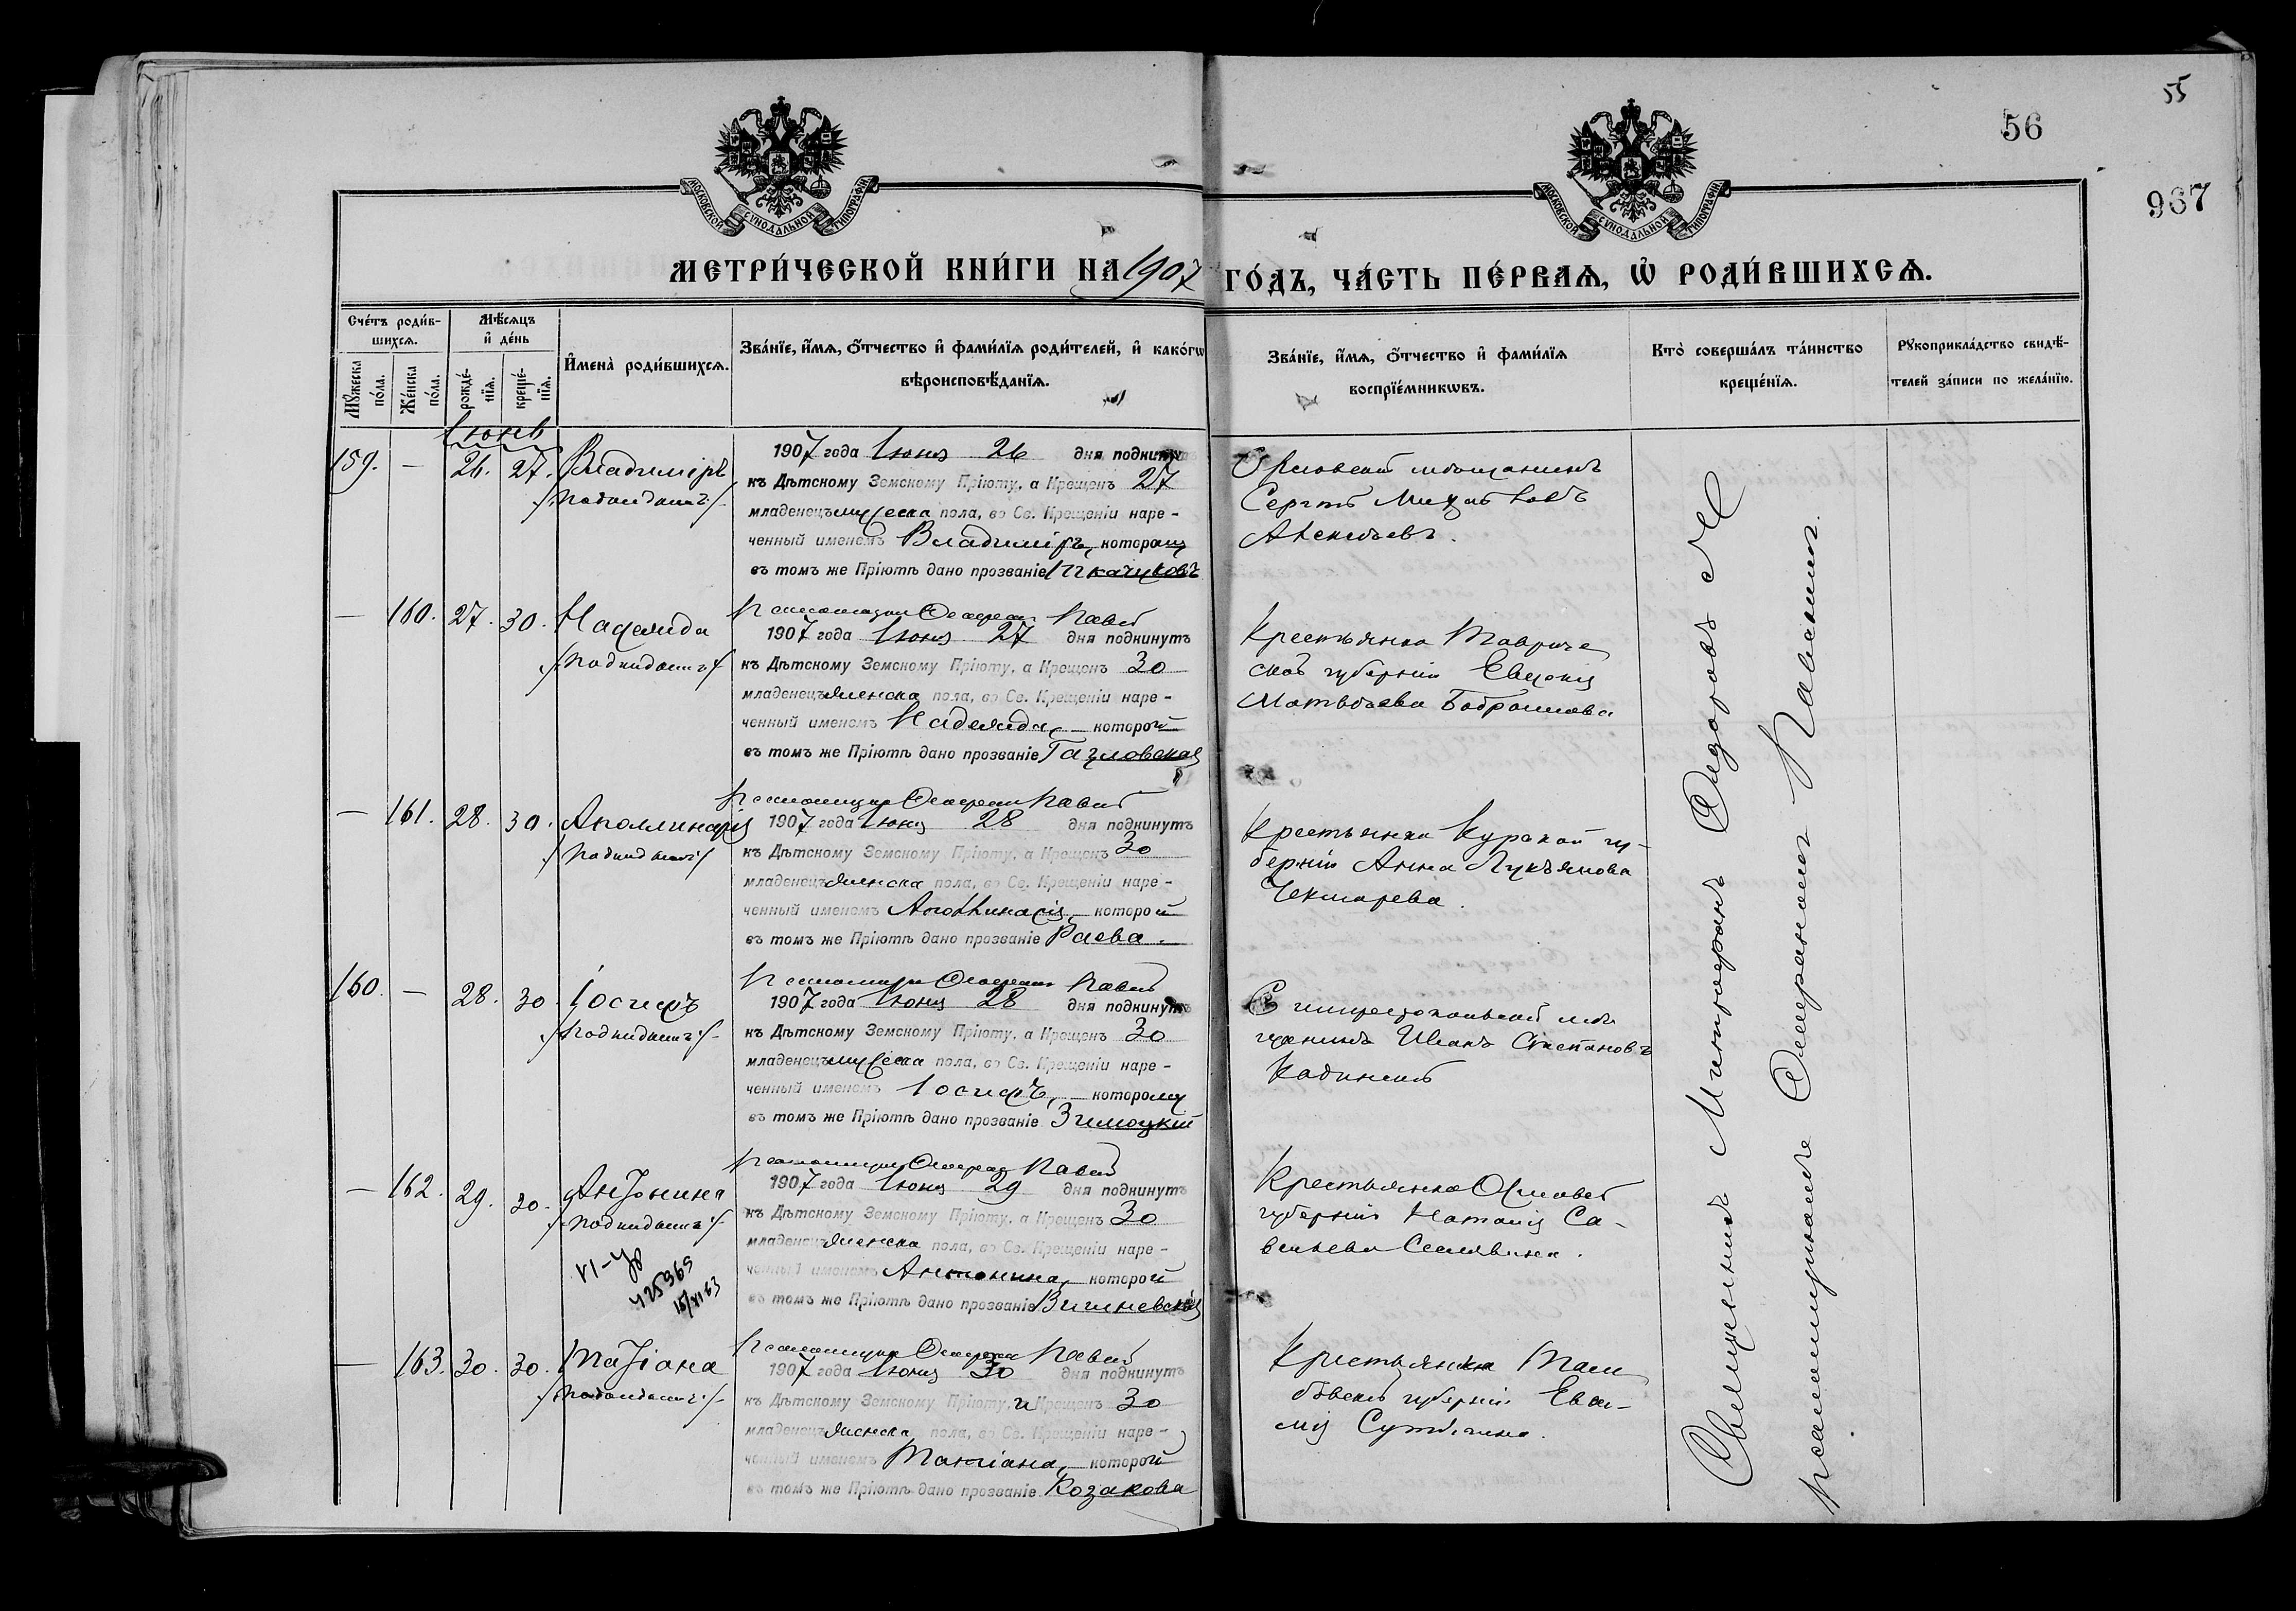 55
56
967
МОСКОВСКОЙ СУНОДАЛЬНОЙ ТИПОГРАФІИ
МОСКОВСКОЙ СУНОДАЛЬНОЙ ТИПОГРАФІИ
МЕТРИ́ЧЕСКОЙ КНИ́ГИ НА 1907 ГО́ДЪ, ЧА́СТЬ ПЕ́РВАѦ, Ѡ҆ РОДИ́ВШИХСѦ.
Сче́тъ роди́в-
шихсѧ.
Мѣ́сѧцъ
и҆ де́нь
Мꙋ́жеска
по́ла.
Же́нска
по́ла.
рожде́-
нїѧ.
креще́-
нїѧ.
И҆мена̀ роди́вшихсѧ.
Зва́нїе, и҆́мѧ, ѻ҆́тчество и҆ фами́лїѧ роди́телей, и҆ како́гѡ
вѣроисповѣ́данїѧ.
Зва́нїе, и҆́мѧ, ѻ҆́тчество и҆ фами́лїѧ
воспрїе́мникѡвъ.
Кто̀ соверша́лъ та́инство
креще́нїѧ.
Рꙋкоприкла́дство свидѣ́-
телей за́писи по жела́нїю.
Іюнь
159. — 26. 27. Владиміръ
/Подкидышъ/
1907 года Іюня 26 дня подкинутъ
къ Дѣтскому Земскому Пріюту, а Крещенъ 27
младенецъ мужеска пола, во Св. Крещеніи наре-
ченный именемъ Владиміръ, которому
въ томъ же Пріютѣ дано прозваніе
Орловскій мѣщанинъ
Сергѣй Михайловъ
— 160. 27. 30. Надежда
/Подкидышъ/
1907 года Іюня 27 дня подкинутъ
къ Дѣтскому Земскому Пріюту, а Крещенъ 30
младенецъ женска пола, во Св. Крещеніи наре-
ченный именемъ Надежда, которой
въ томъ же Пріютѣ дано прозваніе
Крестьянка Тавриче
ской губерніи Евдокія
Матвѣева
— 161. 28. 30. Аполлинарія
/Подкидышъ/
1907 года Іюня 28 дня подкинутъ
къ Дѣтскому Земскому Пріюту, а Крещенъ 30
младенецъ женска пола, во Св. Крещеніи наре-
ченный именемъ Аполлинарія, которой
въ томъ же Пріютѣ дано прозваніе Раева.
Крестьянка Курской гу-
берніи Анна Лукьянова
Чекмарева.
160. — 28. 30 Іосифъ
/Подкидышъ/
1907 года Іюня 28 дня подкинутъ
къ Дѣтскому Земскому Пріюту, а Крещенъ 30
младенецъ мужеска пола, во Св. Крещеніи наре-
ченный именемъ Іосифъ, которому
въ томъ же Пріютѣ дано прозваніе Зимоцкій
Симферопольскій мѣ
щанинъ Иванъ Степановъ
— 162. 29. 30. Антонина
/Подкидышъ/
VI-ЦО
425969
15/XI 63
1907 года Іюня 29 дня подкинутъ
къ Дѣтскому Земскому Пріюту, а Крещенъ 30
младенецъ женска пола, во Св. Крещеніи наре-
ченный именемъ Антонина, которой
въ томъ же Пріютѣ дано прозваніе Вишневская
Крестьянка Орловск
губерніи Наталія Са-
вельева
— 163. 30. 30. Татіана
/Подкидышъ/
1907 года Іюня 30 дня подкинутъ
къ Дѣтскому Земскому Пріюту, и Крещенъ 30
младенецъ женска пола, во Св. Крещеніи наре-
ченный именемъ Татіана, которой
въ томъ же Пріютѣ дано прозваніе Козакова
Крестьянка Там
бовской губерніи Евѳи-
мія
Священникъ Митрофанъ Сидоровъ съ
псаломщикомъ Стефаномъ